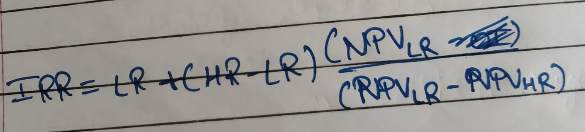 IRR = LR + (HR - LR) (NPV_LR)
(NPV_LR - NPV_HR)